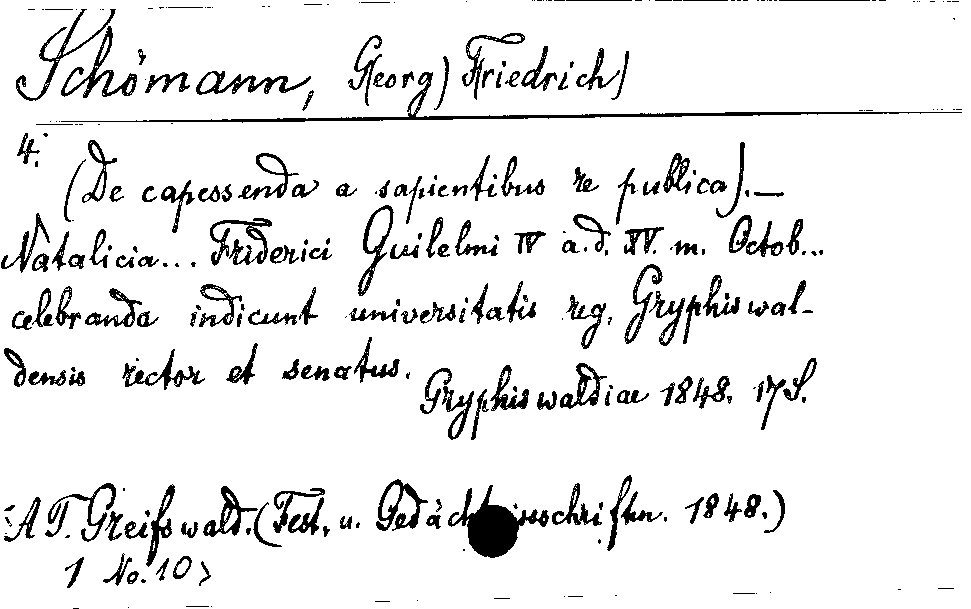 Schömann, G(eorg) F(riedrich)
4.
(De capessenda a sapientibus re publica). —
Natalicia... Friderici Guilelmi IV a.d. XV. m. Octob...
celebranda indicunt universitatis reg. Gryphiswal-
densis rector et senatus.
Gryphiswaldiae 1848. 17 S.
AT. Greifswald. (Fest. u. Gedächtnisschriften. 1848.)
1 No. 10